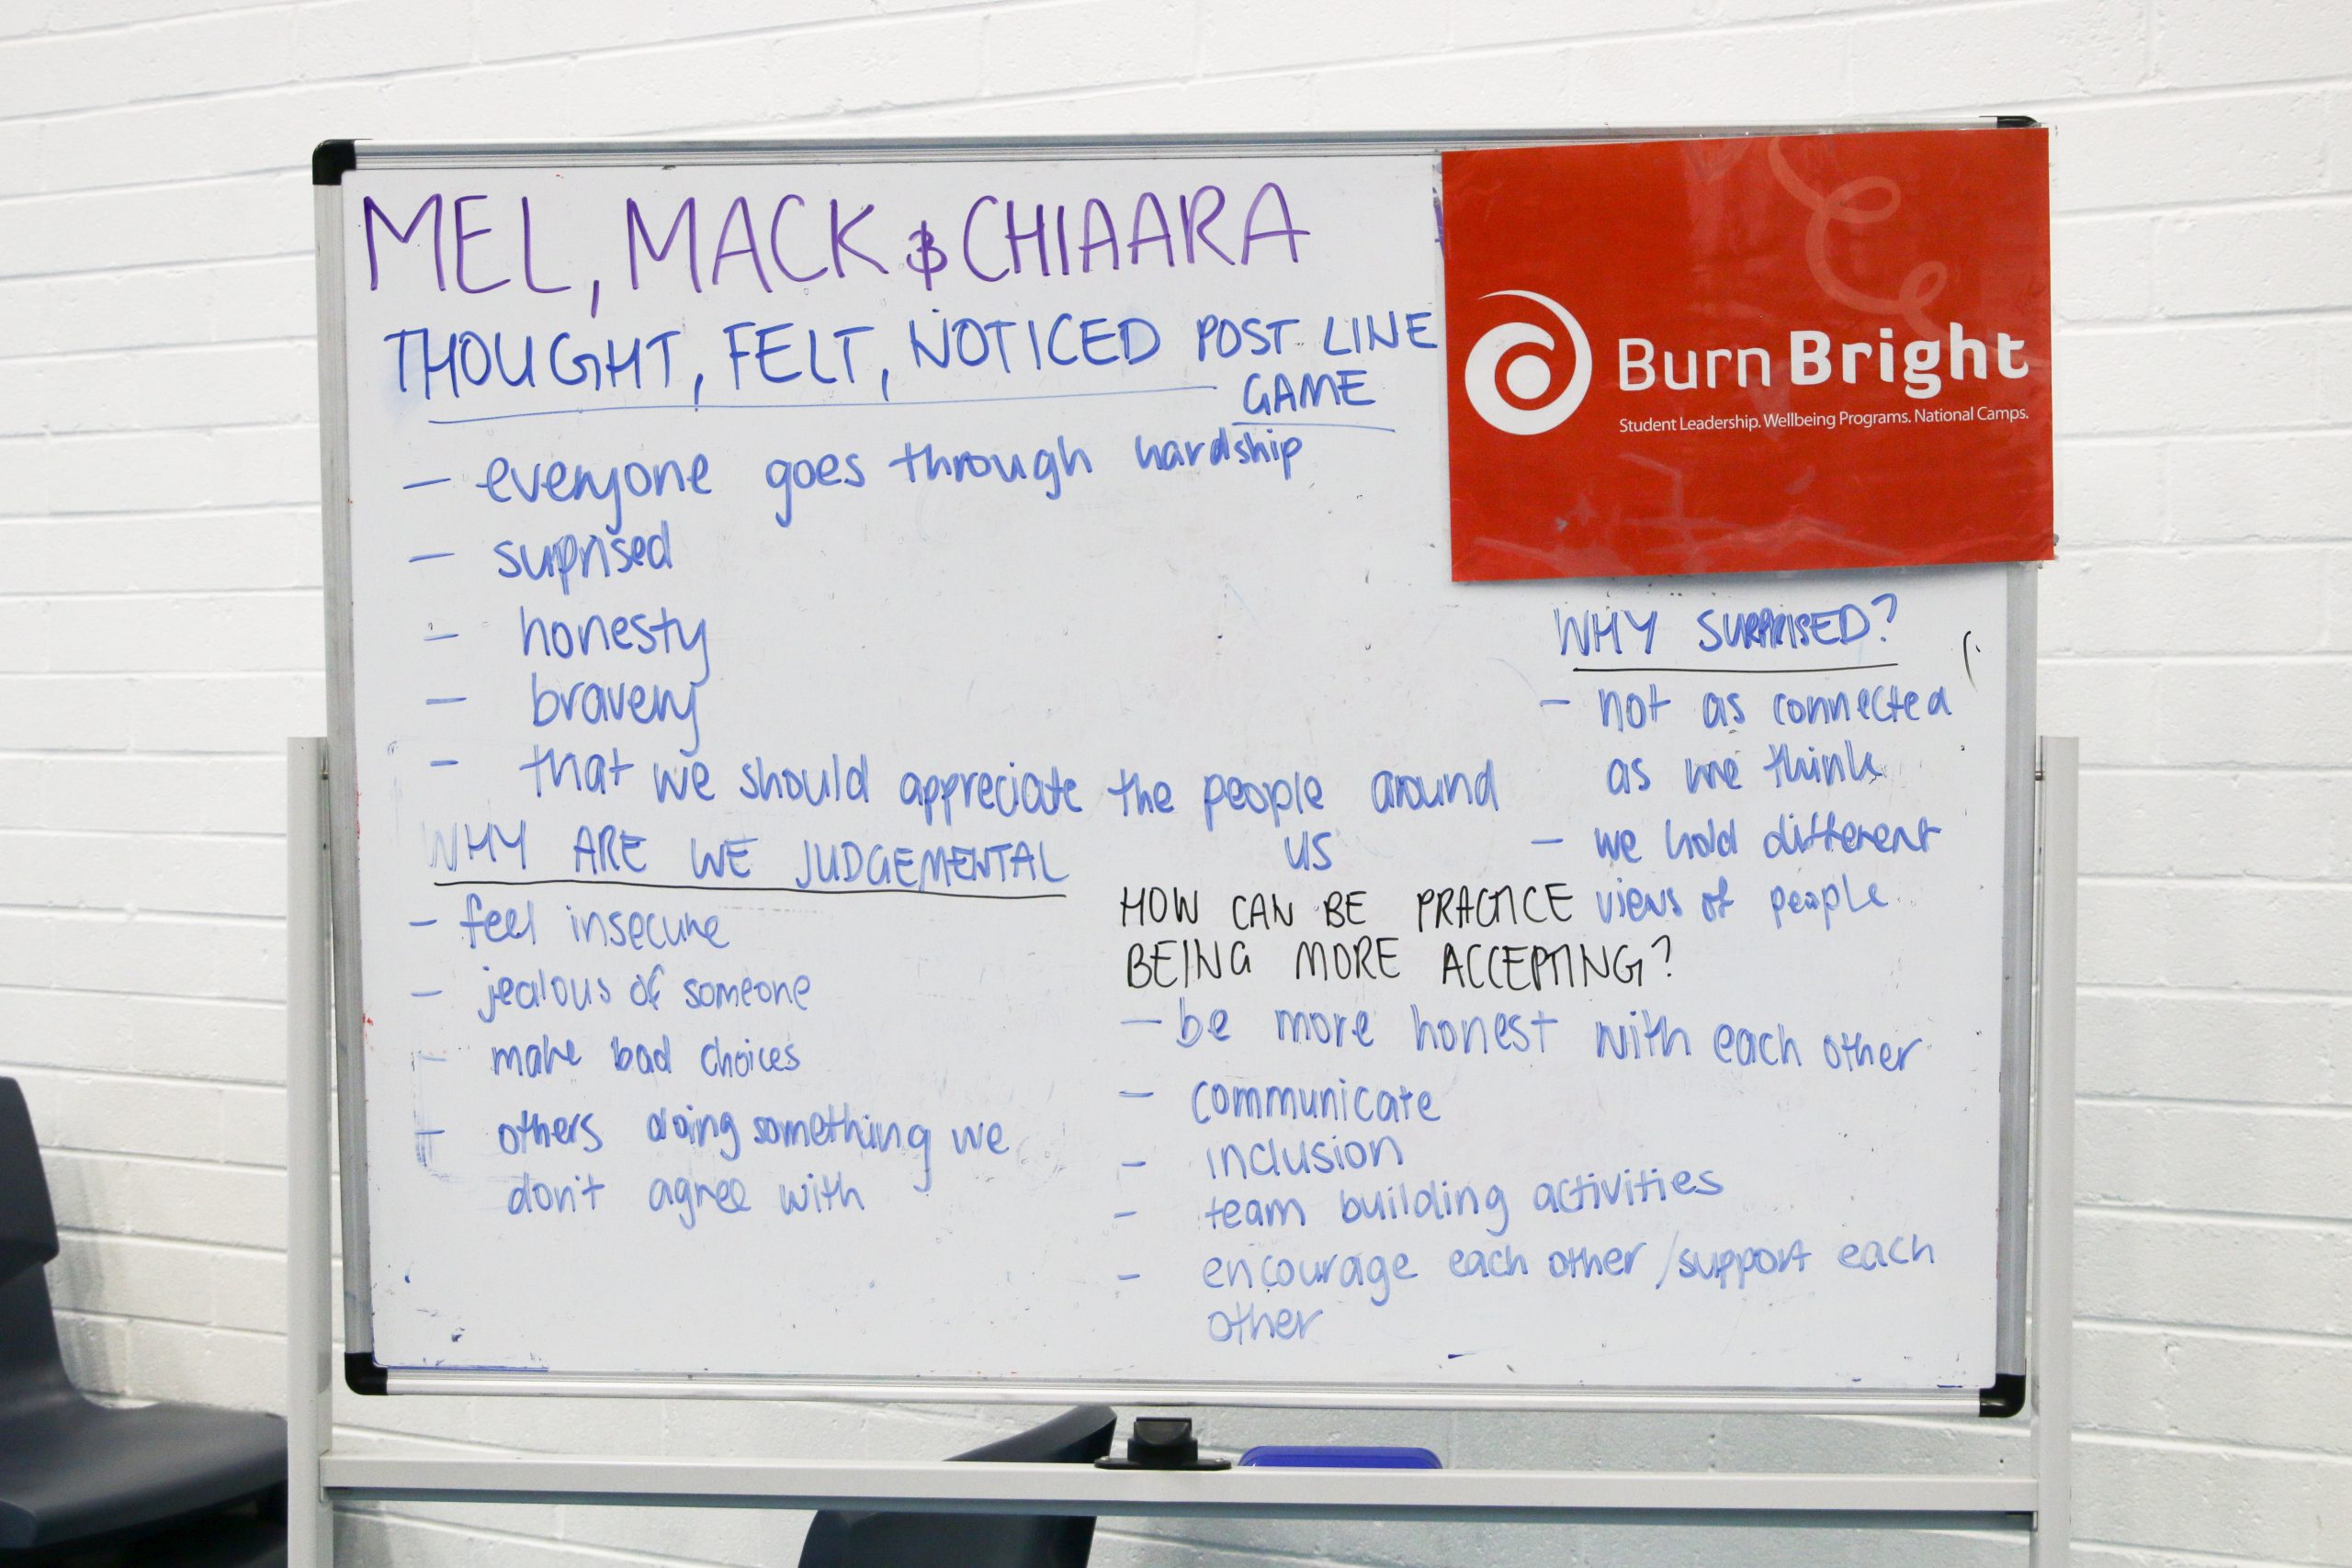 MEL, MACK & CHIAARA
THOUGHT, FELT, NOTICED POST LINE
GAME
- everyone goes through hardship
- surprised
- honesty
- bravery
- that we should appreciate the people around
us
Burn Bright
Student Leadership. Wellbeing Programs. National Camps.
WHY SURPRISED?
- not as connected
as we think
- we hold different
views of people
WHY ARE WE JUDGEMENTAL
- feel insecure
- jealous of someone
- make bad choices
- others doing something we
don't agree with
HOW CAN BE PRACTICE
BEING MORE ACCEPTING?
- be more honest with each other
- communicate
- inclusion
- team building activities
- encourage each other / support each
other